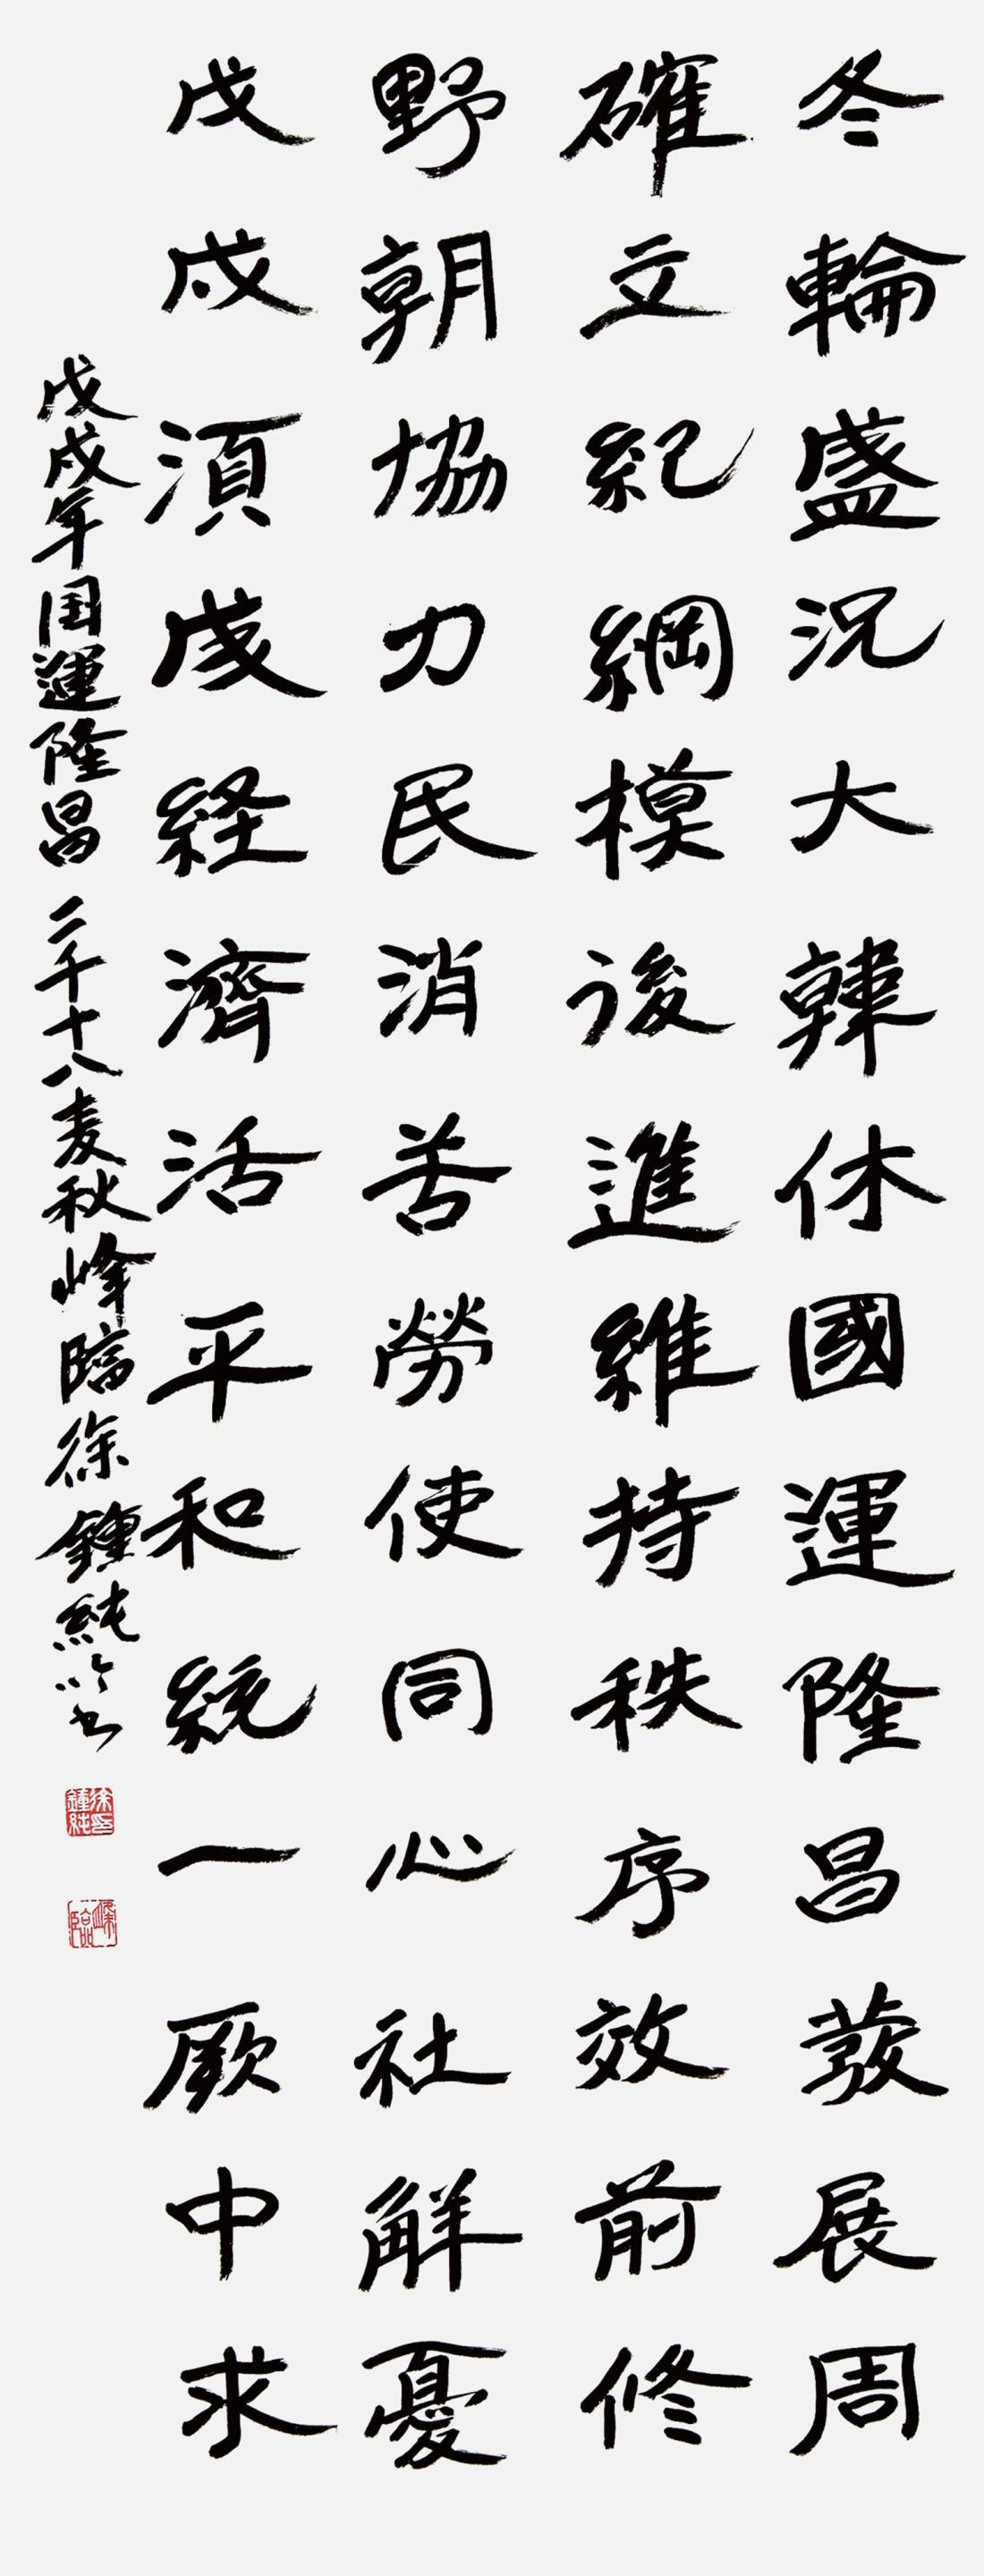 冬輪盛況大韓休國運隆昌發展周
確文紀綱模後進維持秩序效前修
野朝協力民消苦勞使同心社解憂
戊戌須成経濟活平和統一厥中求
戊戌年国運隆昌二千十八麦秋峰臨徐鍾純吟书
徐鍾純印
峰臨